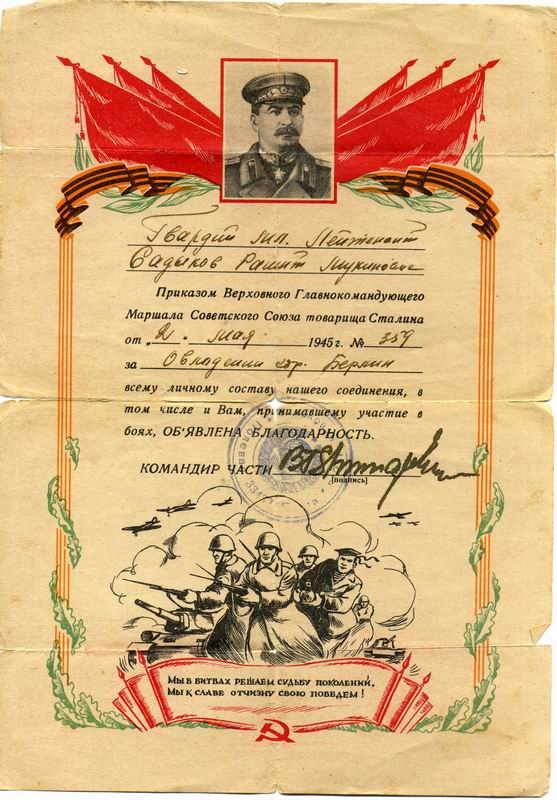 Гвардии мл. Лейтенант
Садыков Рашит
Приказом Верховного Главнокомандующего
Маршала Советского Союза товарища Сталина
от „2.“ мая 1945 г. № 359
за Овладении гор. Берлин
всему личному составу нашего соединения, в
том числе и Вам, принимавшему участие в
боях, ОБ‘ЯВЛЕНА БЛАГОДАРНОСТЬ.
КОМАНДИР ЧАСТИ
(подпись)
МЫ В БИТВАХ РЕШАЕМ СУДЬБУ ПОКОЛЕНИЙ,
МЫ К СЛАВЕ ОТЧИЗНУ СВОЮ ПОВЕДЕМ!